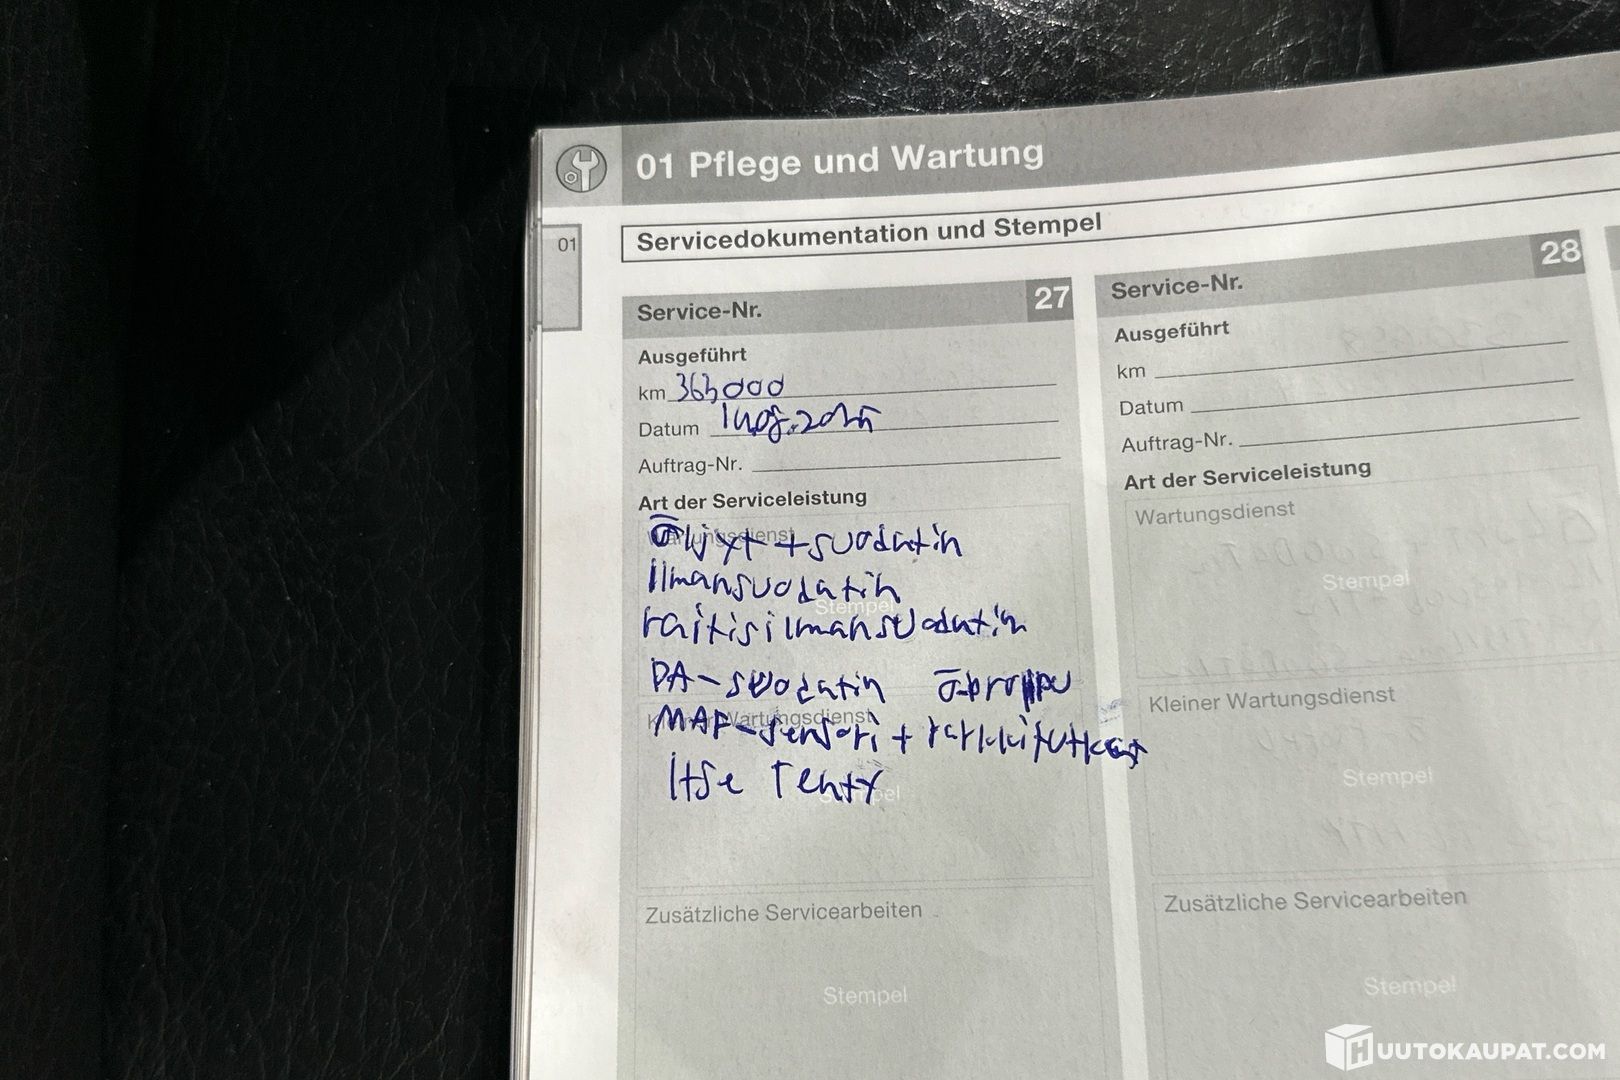 01 Pflege und Wartung
01
Servicedokumentation und Stempel
Service-Nr. 27
Ausgeführt
km 363000
Datum
Auftrag-Nr.
Art der Serviceleistung
Wartungsdienst
Öljyt + suodatin
Ilmansuodatin
Stempel
raitisilmansuodatin
PA-suodatin ö-proppu
Kleiner Wartungsdienst
MAF-sensori +
Itse Tehty
Stempel
Zusätzliche Servicearbeiten
Stempel
Service-Nr. 28
Ausgeführt
km
Datum
Auftrag-Nr.
Art der Serviceleistung
Wartungsdienst
Stempel
Kleiner Wartungsdienst
Stempel
Zusätzliche Servicearbeiten
Stempel
HUUTOKAUPAT.COM